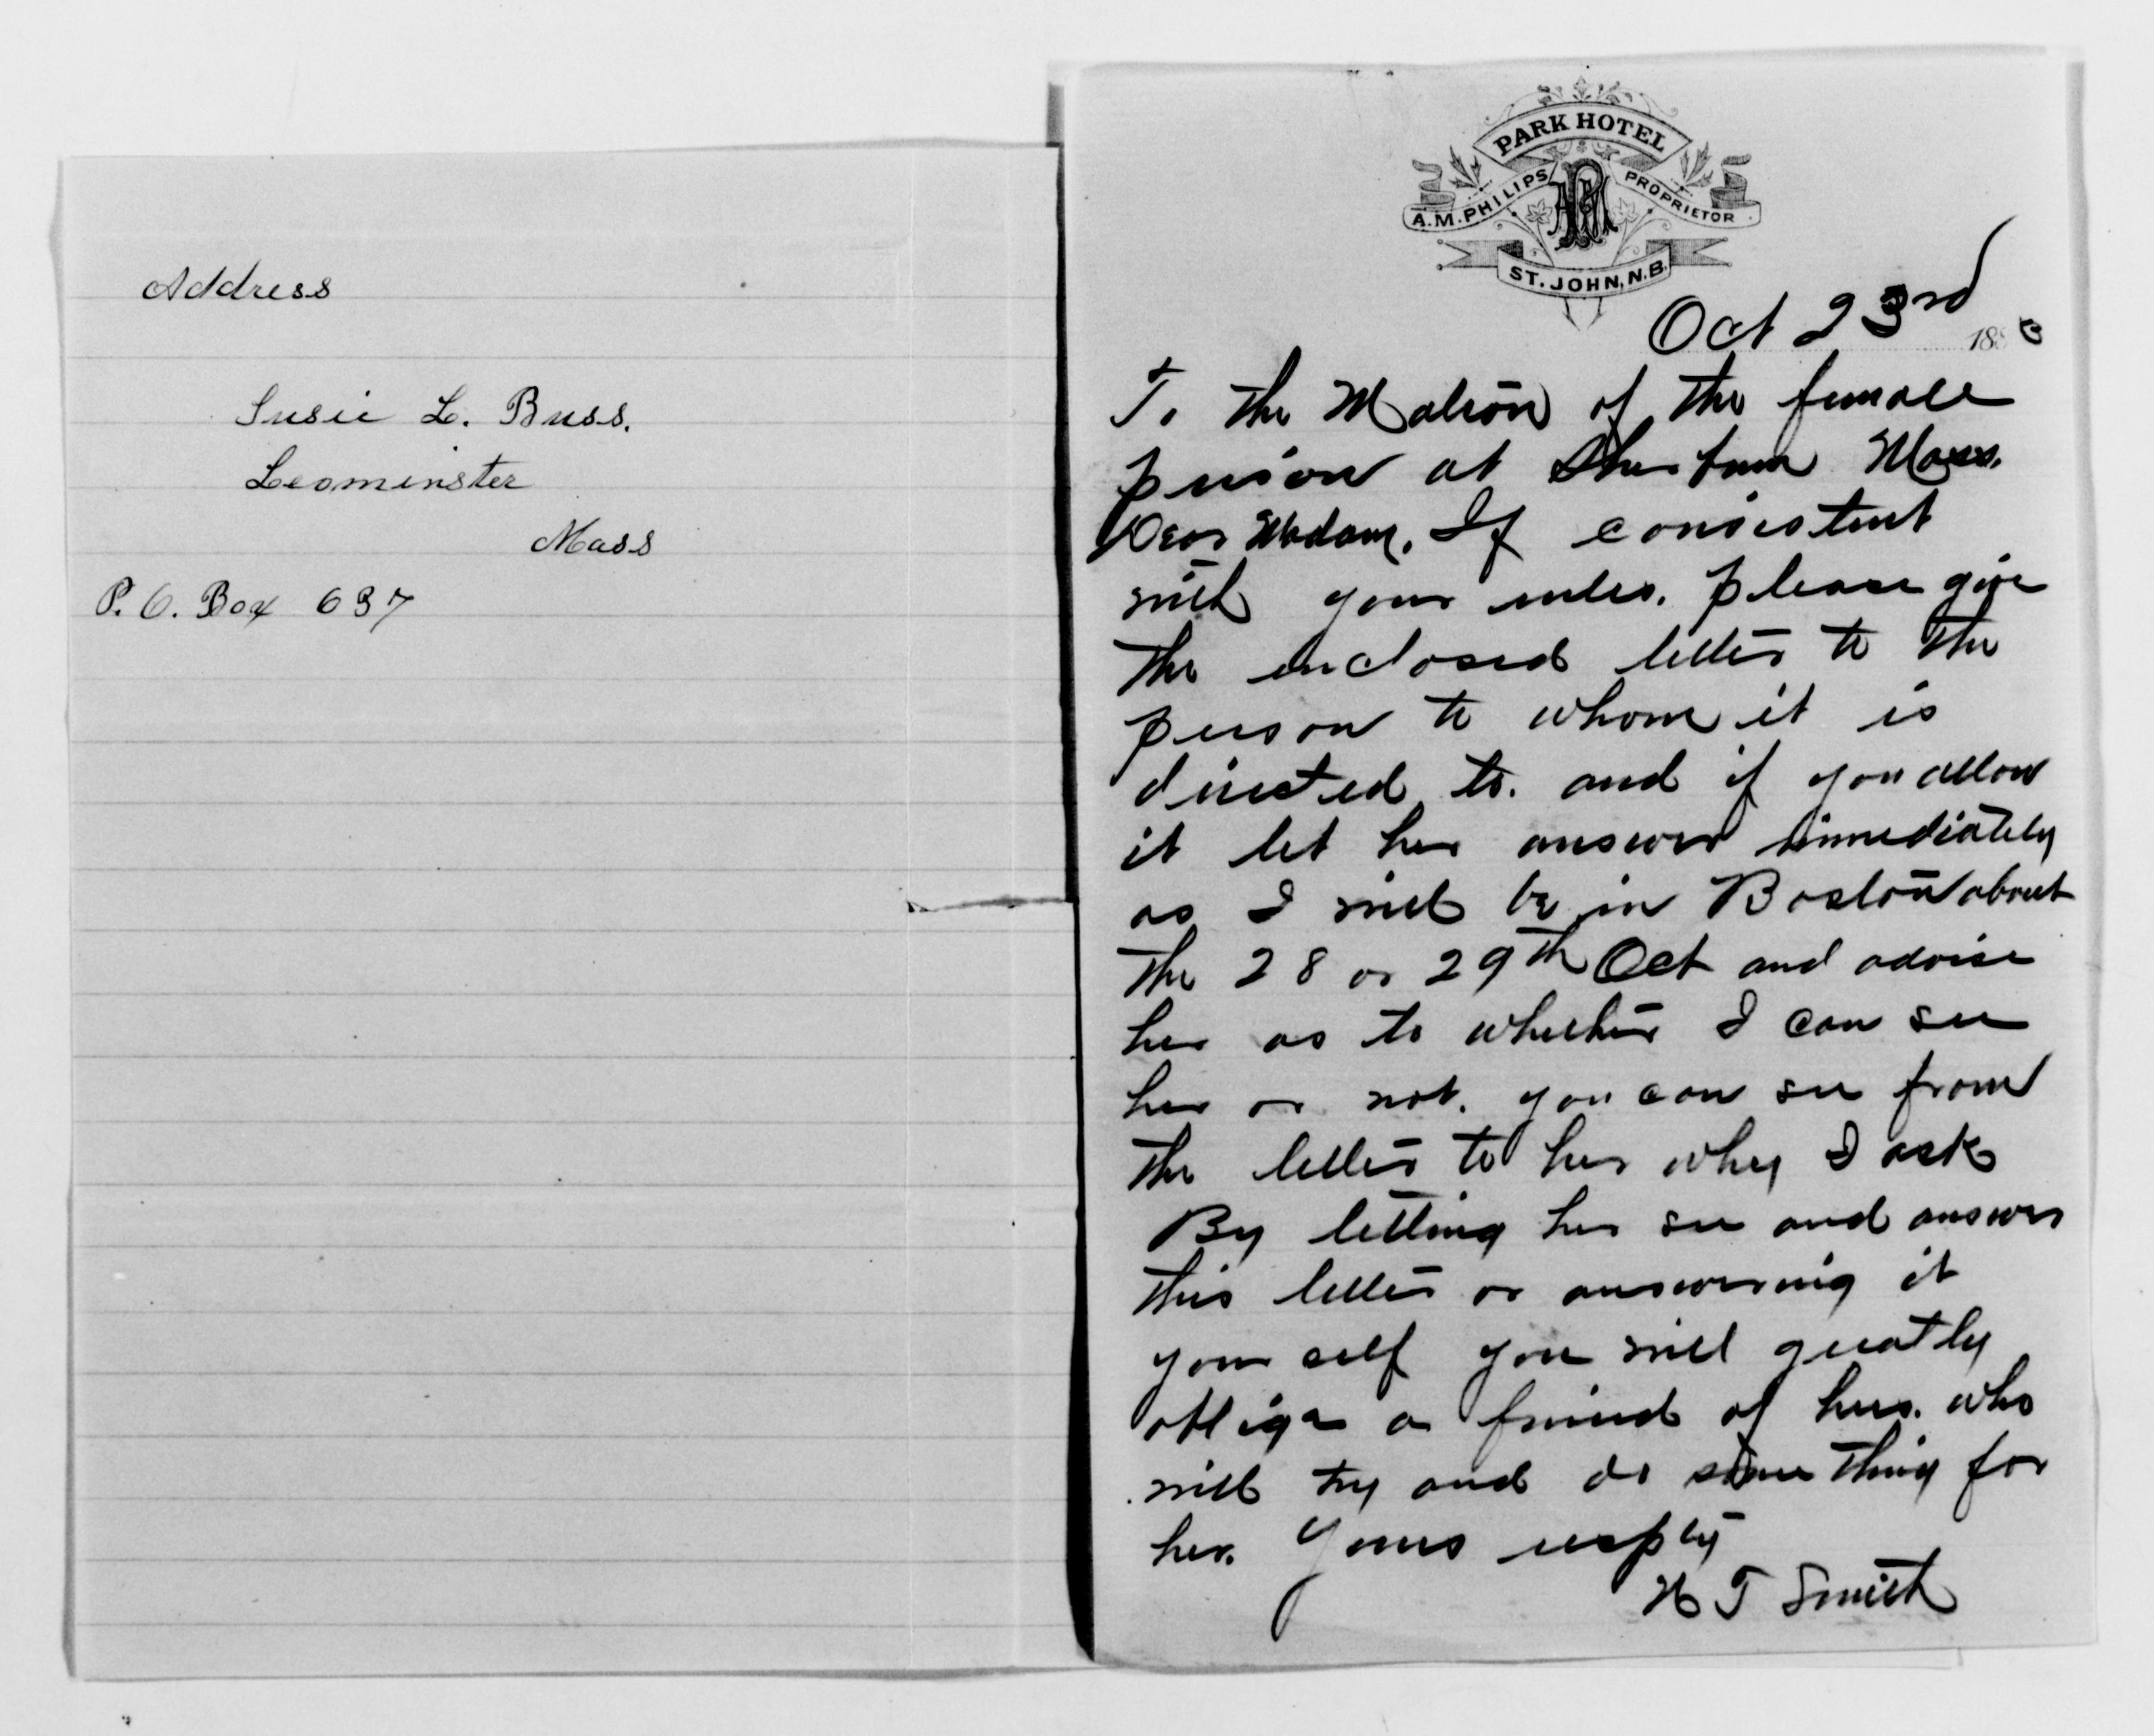 Address
Susie L. Buss.
Leominster
Mass
P. O. Box 637
PARK HOTEL
A.M. PHILIPS PROPRIETOR
ST. JOHN, N.B.
Oct 23rd 1883
To the Matron of the female
prison at Sherborn Mass.
Dear Madam. If consistent
with your rules. please give
the enclosed letter to the
person to whom it is
directed to. and if you allow
it let her answer immediately
as I will be in Boston about
the 28 or 29th Oct and advise
her as to whether I can see
her or not. you can see from
the letter to her why I ask
By letting her see and answer
this letter or answering it
your self you will greatly
oblige a friend of hers. who
will try and do some thing for
her. Yours resply
H T Smith